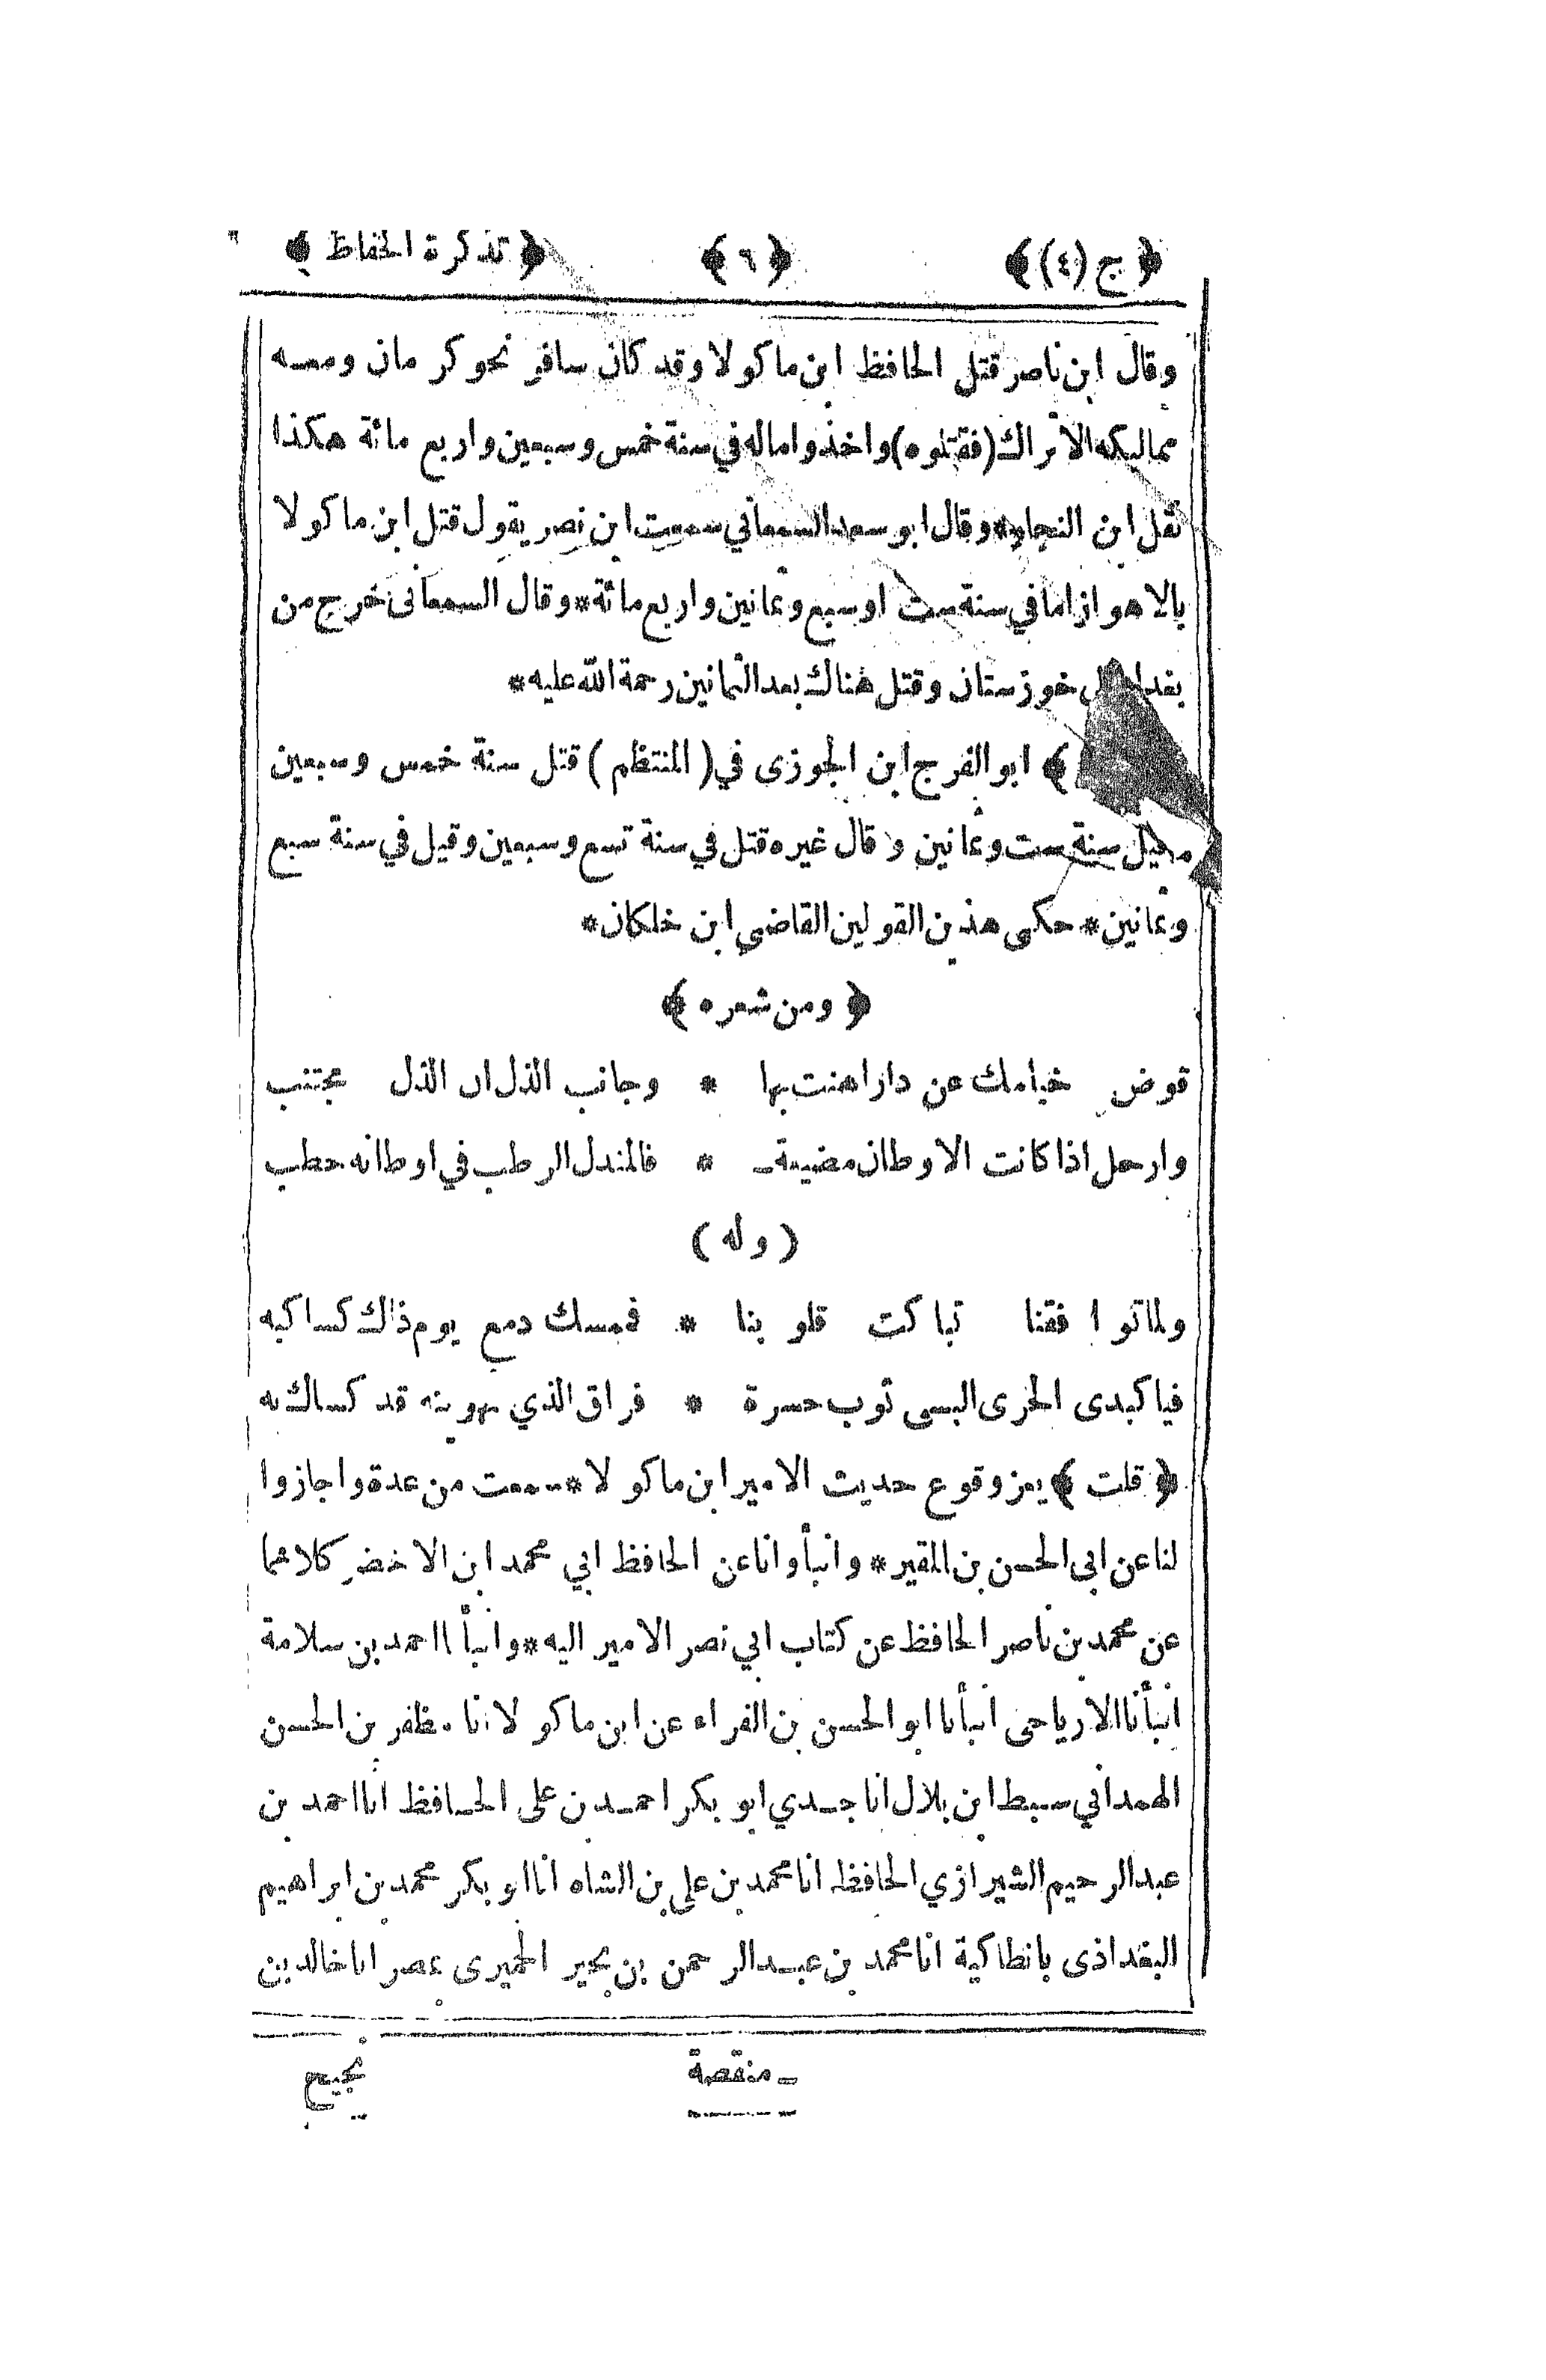 ﴿ ج (٤) ﴾ ﴿ ٦ ﴾ ﴿ تذكرة الحفاظ ﴾
وقال ابن ناصر قتل الحافظ ابن ماكولا وقد كان سافر نحو كرمان ومعه
مماليكه الاتراك (فقتلوه) واخذوا ماله في سنة خمس وسبعين واربع مائة هكذا
نقل ابن النجار * وقال ابو سعد السمعاني سمعت ابن نصر يقول قتل ابن ماكولا
بالاهواز اما في سنة ست او سبع وثمانين واربع مائة * وقال السمعانى خرج من
خوزستان وقتل هناك بعد الثمانين رحمة الله عليه *
﴾ ابو الفرج ابن الجوزى في ( المنتظم ) قتل سنة خمس وسبعين
سنة ست وثمانين وقال غيره قتل في سنة تسع وسبعين وقيل في سنة سبع
وثمانين * حكى هذين القولين القاضي ابن خلكان *
﴿ ومن شعره ﴾
قوض خيامك عن دار اهنت بها * وجانب الذل ان الذل مجتنب
وارحل اذا كانت الاوطان مضيعة ـ * فالمندل الرطب في اوطانه حطب
( وله )
ولما توافقنا تباكت قلوبنا * فمسك دمع يوم ذاك كساكبه
فيا كبدى الحرى البسى ثوب حسرة * فراق الذي تهوينه قد كساك به
﴿ قلت ﴾ يعز وقوع حديث الامير ابن ماكولا * سمعت من عدة واجازوا
لنا عن ابى الحسن بن المقير * وانبأونا عن الحافظ ابي محمد ابن الاخضر كلاهما
عن محمد بن ناصر الحافظ عن كتاب ابي نصر الامير اليه * وانبأنا احمد بن سلامة
انبأنا الارياحى انبأنا ابو الحسن بن الفراء عن ابن ماكولا انا مظفر بن الحسن
الهمداني سبط ابن بلال انا جدي ابو بكر احمد بن على الحافظ انا احمد بن
عبد الرحيم الشيرازي الحافظ انا محمد بن على بن الشاه انا ابو بكر محمد بن ابراهيم
البغداذى بانطاكية انا محمد بن عبد الرحمن بن بحير الحميرى بمصر انا خالد بن
ـ منقصة
نجيح